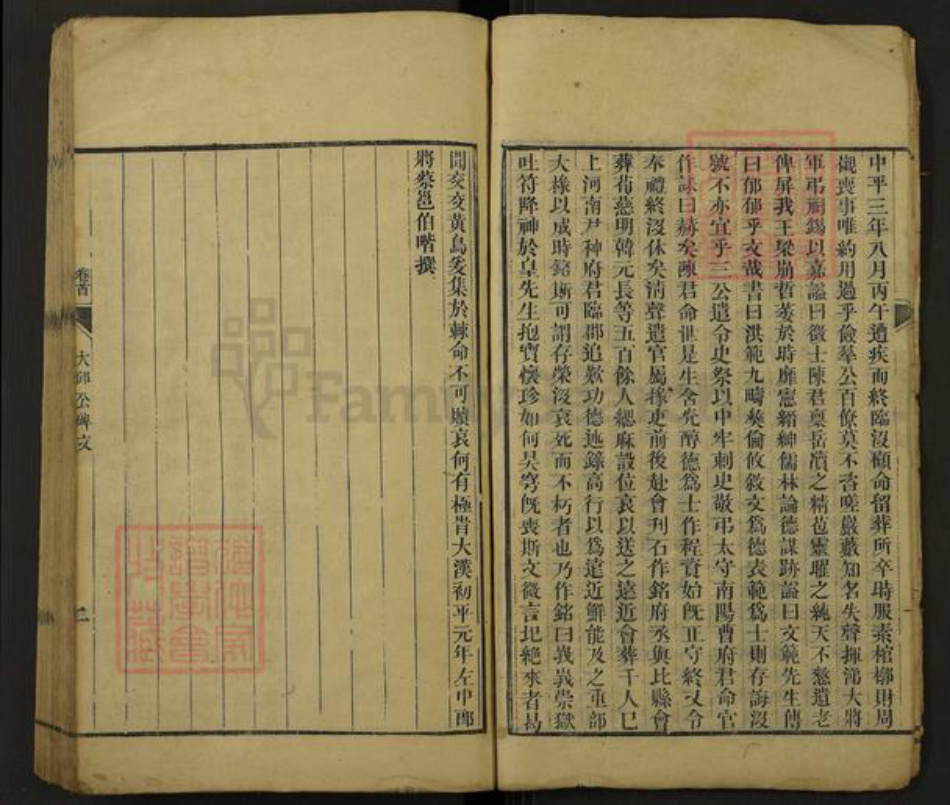 中平三年八月丙午遭疾而終臨沒顧命留葬所卒時服素棺槨財周
櫬喪事唯約用過乎儉羣公百僚莫不咨嗟巖藪知名失聲揮涕大將
軍弔祠錫以嘉謚曰徵士陳君稟岳瀆之精苞靈曜之純天不憗遺老
俾屏我王梁崩哲萎於時靡憲縉紳儒林論德謀跡謚曰文範先生傳
曰郁郁乎文哉書曰洪範九疇彜倫攸敘文爲德表範爲士則存誨沒
號不亦宜乎三公遣令史祭以中牢刺史敬弔太守南陽曹府君命官
作誄曰赫矣陳君命世是生含光醇德爲士作程資始旣正守終又令
奉禮終沒休矣淸聲遣官屬掾吏前後赴會刋石作銘府丞與比縣會
葬荀慈明韓元長等五百餘人緦麻設位哀以送之遠近會葬千人已
上河南尹种府君臨郡追歎功德述錄高行以爲遠近鮮能及之重部
大掾以成時銘斯可謂存榮沒哀死而不朽者也乃作銘曰峩峩崇嶽
吐符降神於皇先生抱寳懷珍如何昊穹旣喪斯文微言圮絶來者曷
聞交交黃鳥爰集於棘命不可贖哀何有極旹大漢初平元年左中郎
將蔡邕伯喈撰
卷首
大邱公碑文
二
FamilySearch